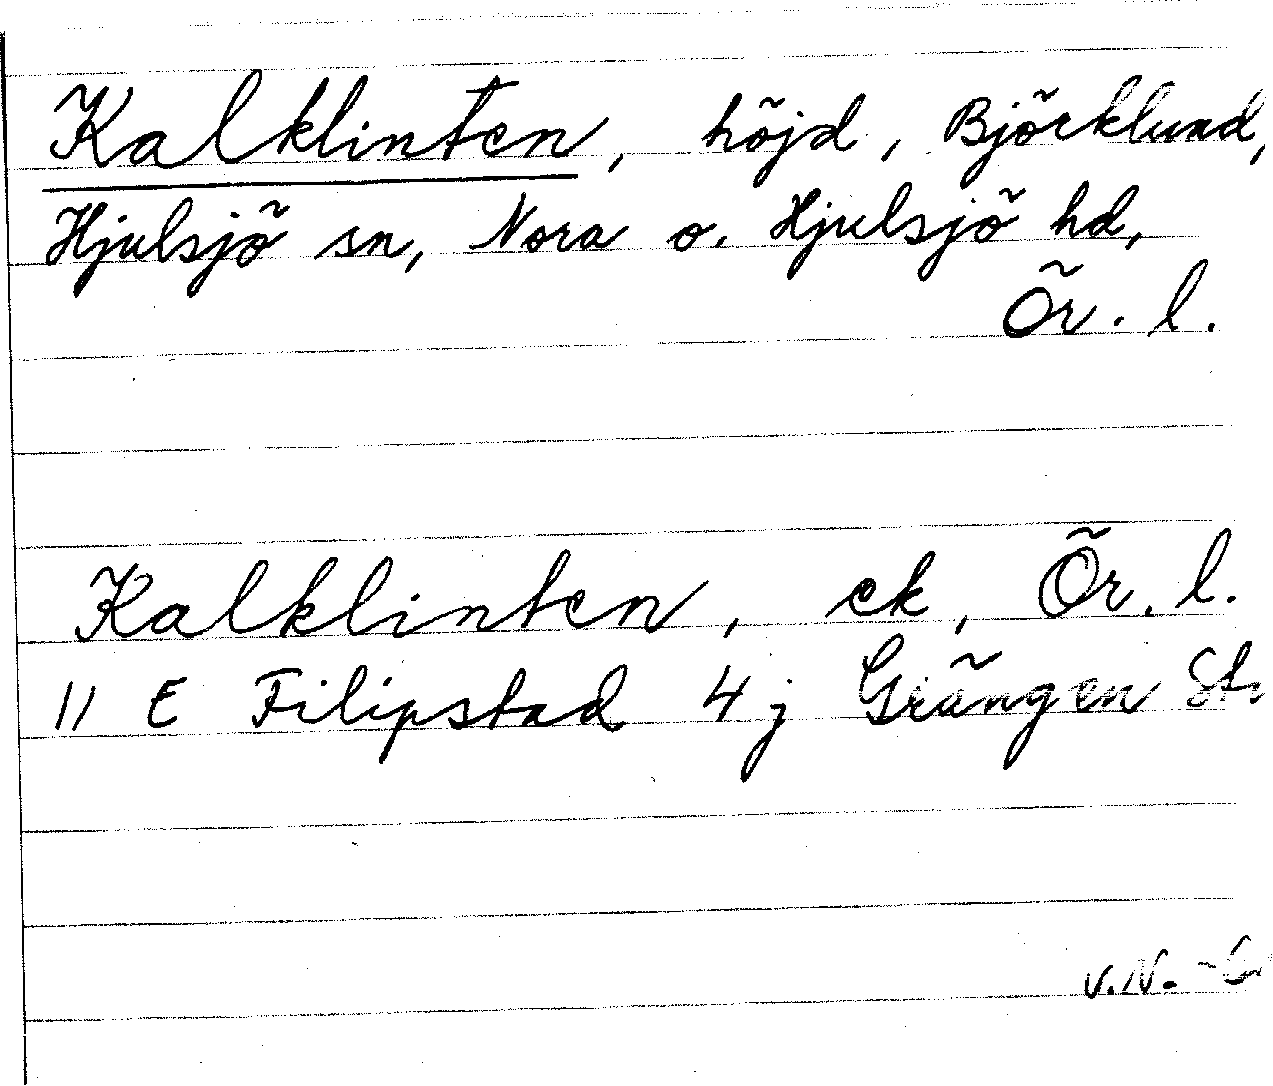 Kalklinten, höjd, Björklund,
Hjulsjö sn, Nora o. Hjulsjö hd,
Ör. l.
Kalklinten, ek, Ör. l.
11 E Filipstad 4 j Grängen
v. N.